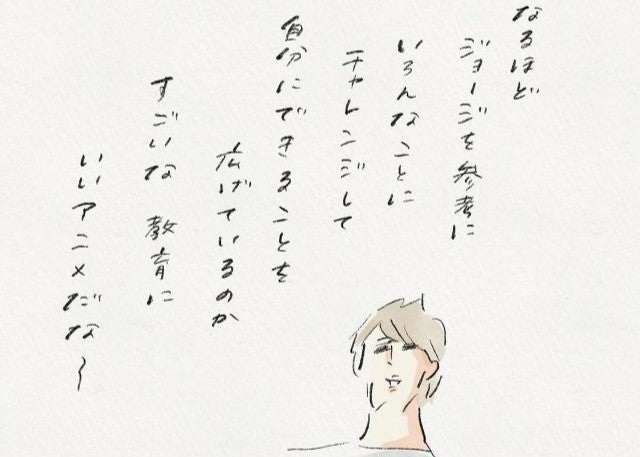 なるほど
ジョージを参考に
いろんなことに
チャレンジして
自分にできることを
広げているのか
すごいな 教育に
いいアニメだな〜